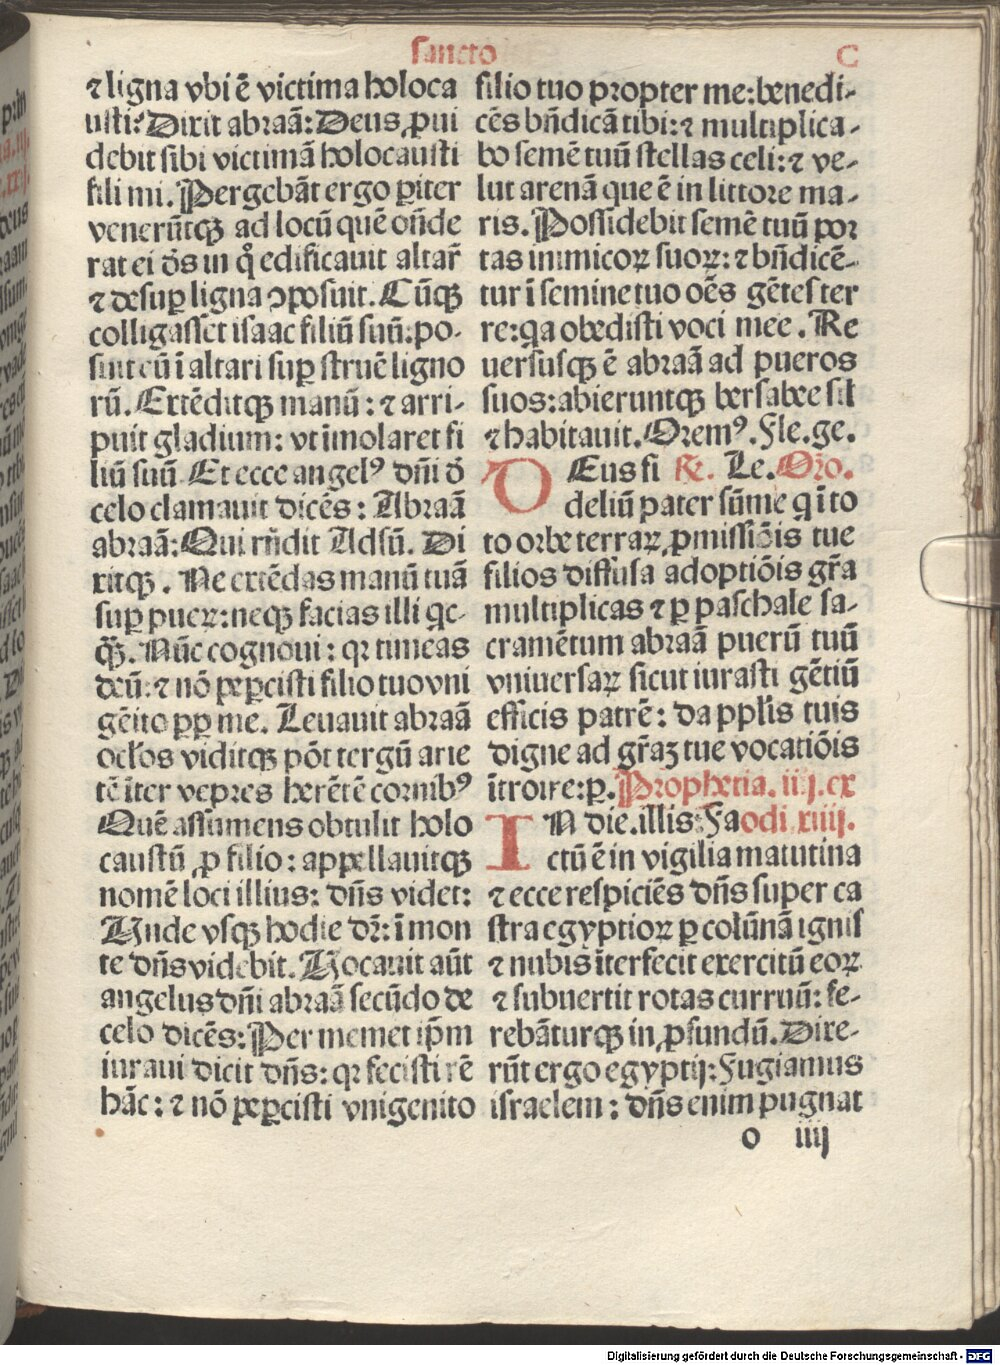 sancto
C
⁊ ligna vbi ē victima holoca
usti? Dixit abraā: Deus ꝓui
debit sibi victimā holocausti
fili mi. Pergebāt ergo ꝑiter
venerūtqꝫ ad locū quē oñde
rat ei ds̄ in q̊ edificauit altar̄
⁊ desuꝑ ligna ꝯposuit. Cūqꝫ
colligasset isaac filiū suū: po-
suit eū ī altari suꝑ struē ligno
rū. Extēditqꝫ manū: ⁊ arri-
puit gladium: vt īmolaret fi
liū suū Et ecce angelꝰ dñi d̄
celo clamauit dicēs: Abraā
abraā: Qui rñdit Adsū. Di
xitqꝫ. Ne extēdas manū tuā
suꝑ pueꝝ: neqꝫ facias illi qc̄-
qꝫ̄. Nūc cognoui: qꝛ timeas
deū: ⁊ nō peꝑcisti filio tuo vni
gēito ꝓꝑ me. Leuauit abraā
ocl̄os viditqꝫ pōt tergū arie
tē īter vepres herētē cornibꝰ
Quē assumens obtulit holo
caustū ꝓ filio: appellauitqꝫ
nomē loci illius: dñs videt:
Unde vsqꝫ hodie dr̄: ī mon
te dñs videbit. Uocauit aūt
angelus dñi abraā secūdo de
celo dicēs: Per memet ip̄m
iuraui dicit dñs: qꝛ fecisti rē
hāc: ⁊ nō peꝑcisti vnigenito
filio tuo propter me: benedi-
cēs bñdicā tibi: ⁊ multiplica-
bo semē tuū stellas celi: ⁊ ve-
lut arenā que ē in littore ma-
ris. Possidebit semē tuū por
tas inimicoꝝ suoꝝ: ⁊ bñdicē-
tur ī semine tuo oēs gētes ter
re: qꝛa obedisti voci mee. Re
uersusqꝫ ē abraā ad pueros
suos: abieruntqꝫ bersabee sil̄
⁊ habitauit. Oremꝰ. Fle. ge.
DEus fi ℞. Le. Or̄o.
deliū pater sūme q ī to
to orbe terraꝝ ꝓmissiōis tue
filios diffusa adoptiōis gr̄a
multiplicas ⁊ ꝑ paschale sa-
cramētum abraā puerū tuū
vniuersaꝝ sicut iurasti gētiū
efficis patrē: da ppl̄is tuis
digne ad gr̄aꝫ tue vocatiōis
ītroire: ꝑ. Prophetia. iiij. ex
IN die. illis: Fa odi. xiiij.
ctū ē in vigilia matutina
⁊ ecce respiciēs dñs super ca
stra egyptioꝝ ꝑ colūnā ignis
⁊ nubis īterfecit exercitū eoꝝ
⁊ subuertit rotas curruū: fe-
rebāturqꝫ in ꝓfundū. Dixe-
rūt ergo egyptij: Fugiamus
israelem: dñs enim pugnat
o iiij
Digitalisierung gefördert durch die Deutsche Forschungsgemeinschaft - DFG